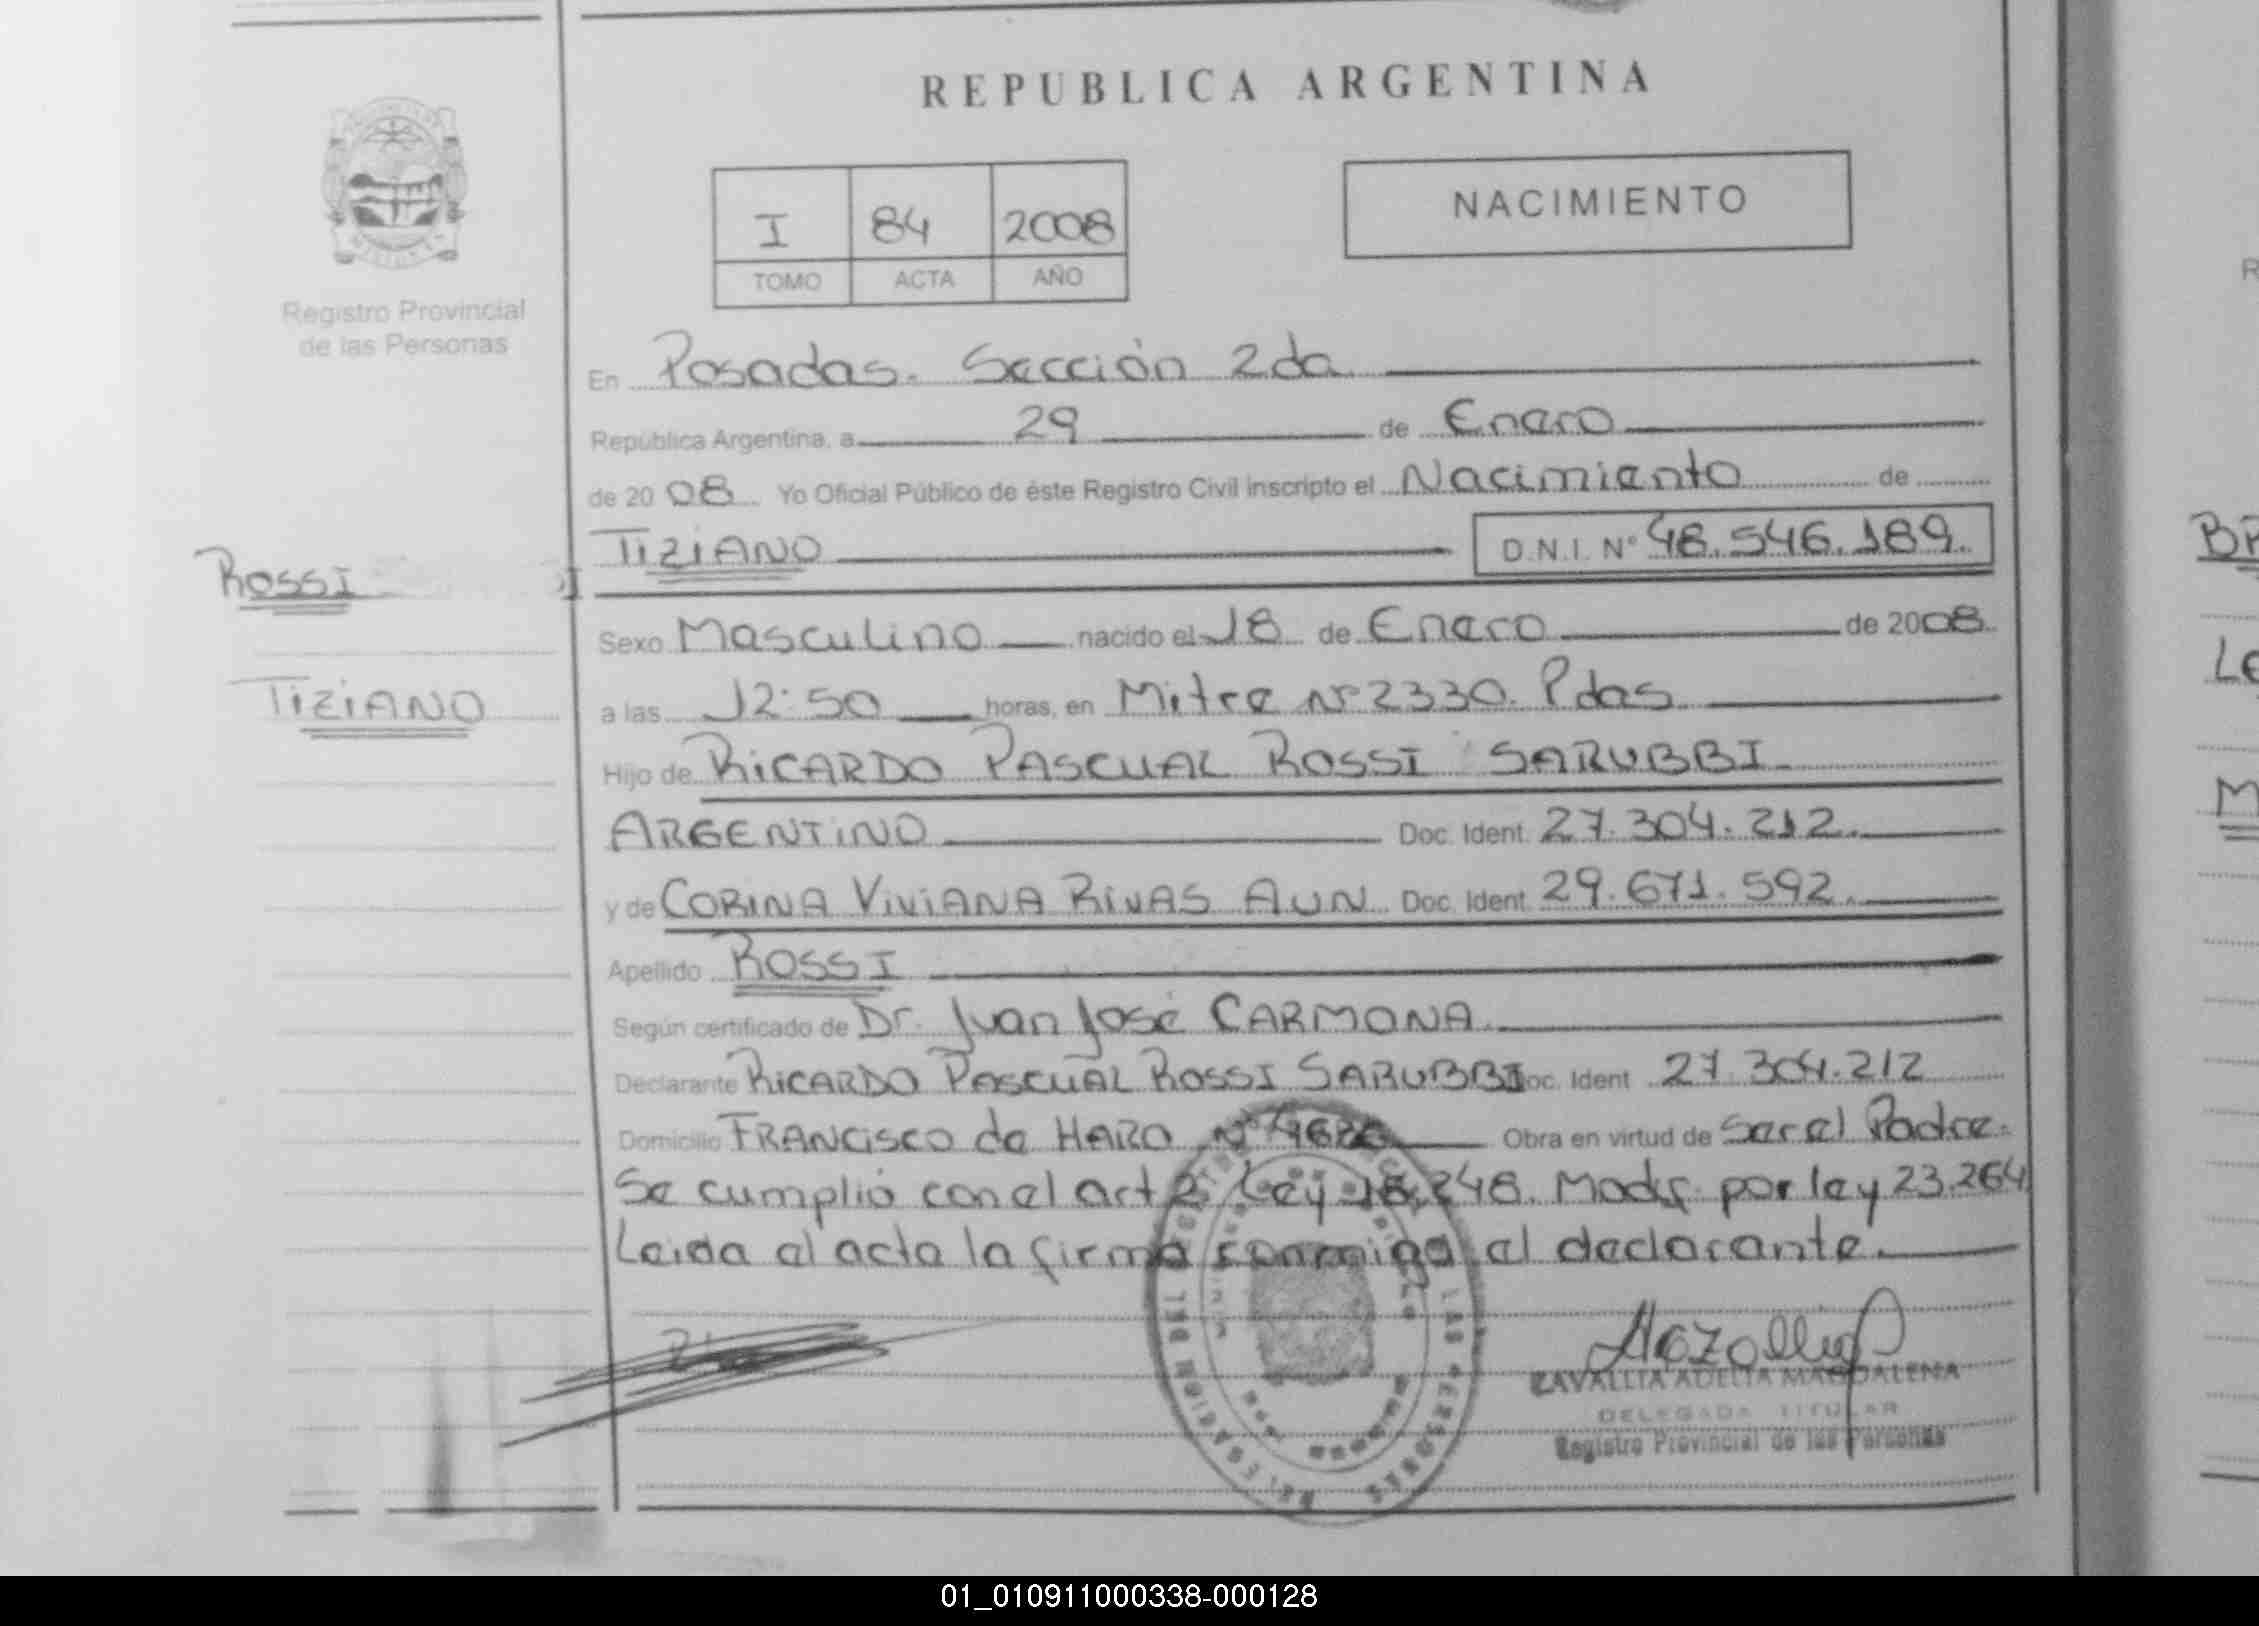 REPUBLICA ARGENTINA
I 84 2008
TOMO ACTA AÑO
NACIMIENTO
Registro Provincial
de las Personas
En Posadas. Sección 2da
República Argentina, a 29 de Enero
de 2008 Yo Oficial Público de éste Registro Civil inscripto el Nacimiento de
TIZIANO D.N.I. Nº 48.546.189.
ROSSI
TIZIANO
Sexo Masculino nacido el 18 de Enero de 2008
a las 12:50 horas, en Mitre Nº 2330. Pdas
Hijo de RICARDO PASCUAL ROSSI SARUBBI
ARGENTINO Doc. Ident. 27.304.212.
y de CORINA VIVIANA RIVAS AUN Doc. Ident. 29.671.592.
Apellido ROSSI
Según certificado de Dr. Juan José CARMONA
Declarante RICARDO PASCUAL ROSSI SARUBBI Doc. Ident 27.304.212
Domicilio FRANCISCO de HARO Nº Obra en virtud de Ser el Padre.
Se cumplió con el art 2 Ley 18.248. Modif. por ley 23.264
Leida el acta la firma conmigo el declarante.
ZAVALLIA ADELIA MAGDALENA
DELEGADA TITULAR
Registro Provincial de las Personas
01_010911000338-000128